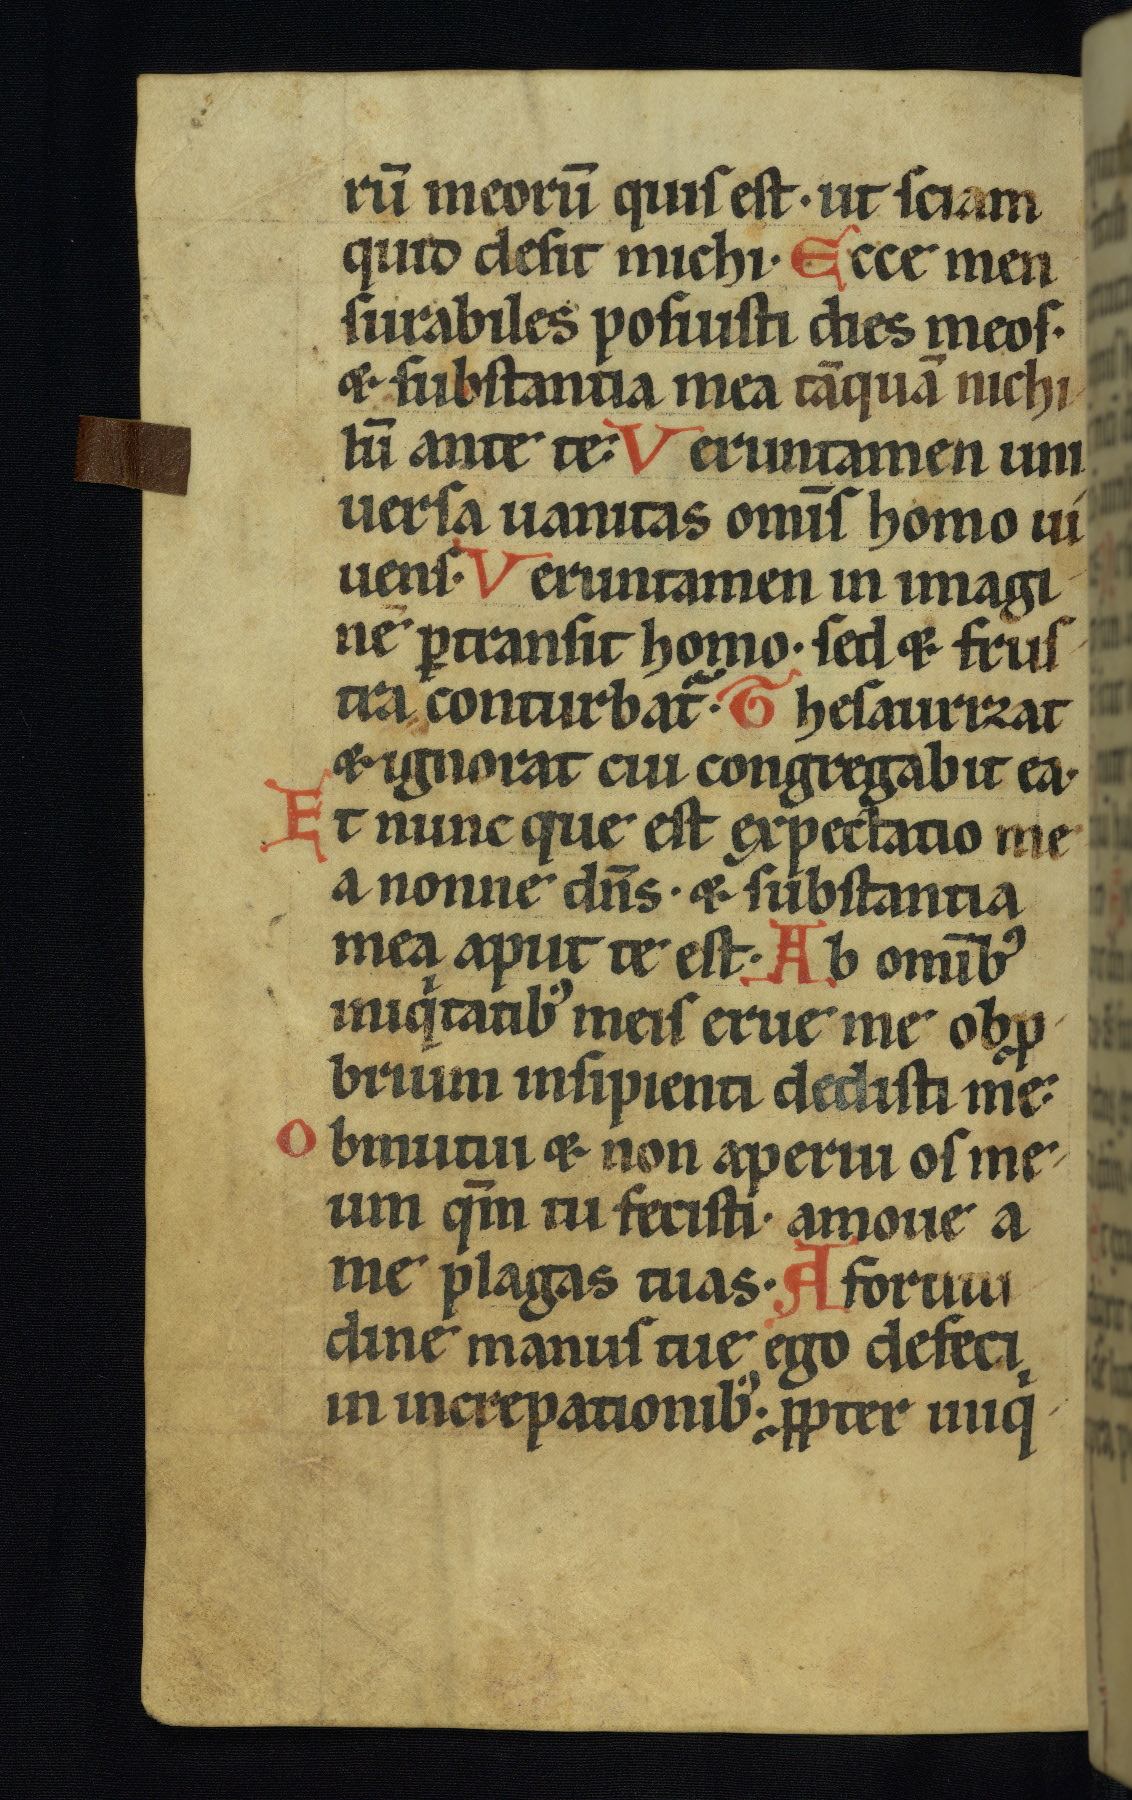 rū meorū quis est· ut sciam
quid desit michi· Ecce men
surabiles posuisti dies meos·
& substantia mea tāquā nichi
lū ante te· Veruntamen uni
uersa uanitas om̄is homo ui
uens· Veruntamen in imagi
ne ꝑtransit homo· sed & frus
tra conturbat᷑· Thesaurizat
& ignorat cui congregabit ea·
Et nunc que est expectatio me
a nonne dn̄s· & substantia
mea aput te est· Ab om̄ibꝰ
iniqͥtatibꝰ meis erue me obꝓ
brium insipienti dedisti me·
Obmutui & non aperui os me
um qm̄ tu fecisti· amoue a
me plagas tuas· A fortitu
dine manus tue ego defeci
in increpationibꝰ· ꝓpter iniqͥ